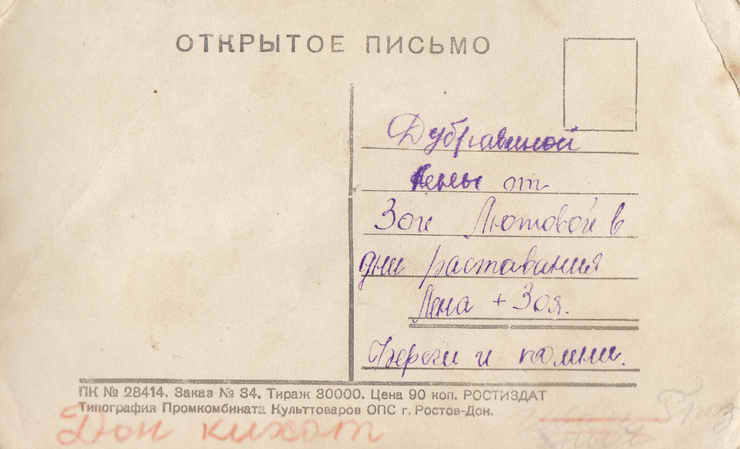 ОТКРЫТОЕ ПИСЬМО
Дубравиной
Лены от
Зои Лютовой в
дни раставания
Лена + Зоя.
Береги и помни.
ПК № 28414. Заказ № 34. Тираж 30000. Цена 90 коп. РОСТИЗДАТ
Типография Промкомбината Культтоваров ОПС г. Ростов-Дон.
Дон кихот